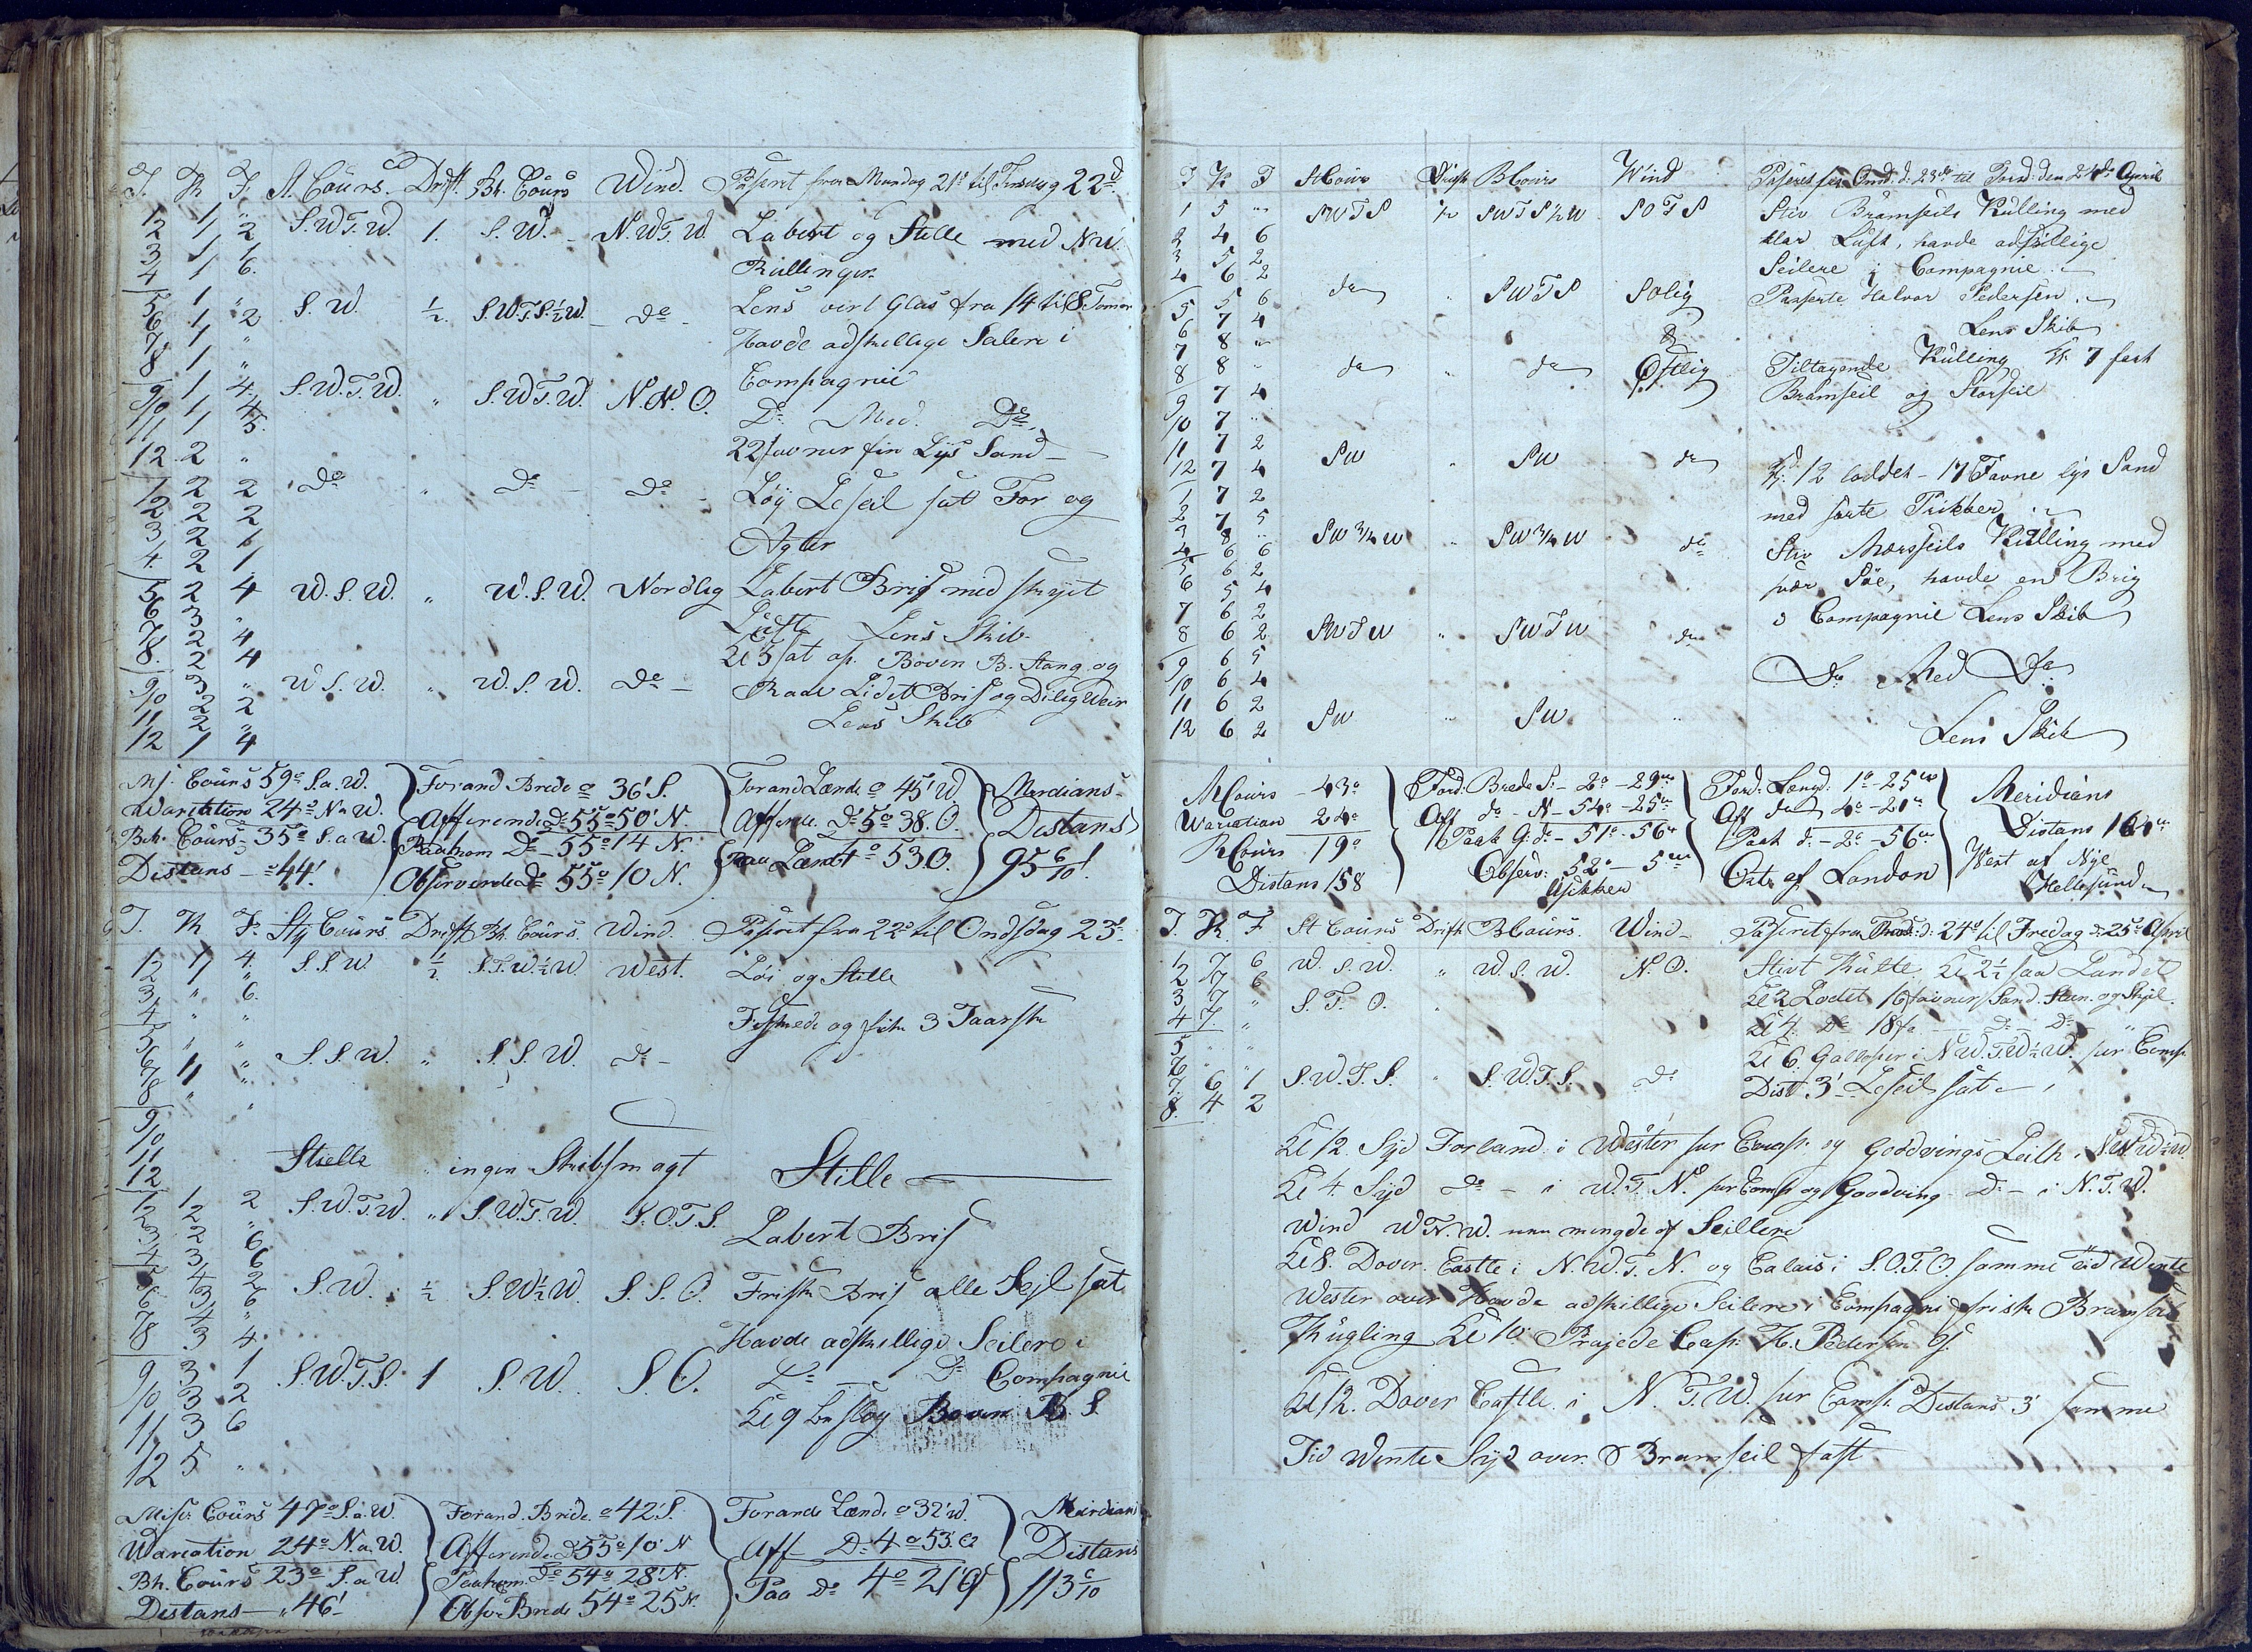 T. K F. St. Cours. Drift. Bh. Cours Wind. Passerit fra Mandag 21d til Tirsdag 22d
1 1 „ S.W.T.W. 1. S.W. N.W.T.W. Labert og Stille med NW.
2 1 2
3 1 1 Kullinger.
4 1 6.
5 1 „ S.W. ½ S.W.T.S.½W. do Lens virt Glas fra 14 til 8 Tomer
6 1 2
7 1 „ Havde adskellige Salere i
8 1 „
9 1 4. S.W.T.W. „ S.W.T.W. N.N.O. Compagnie
10 1 4 Do Med Do
11 1 5.
12 2 „ 22 favner fin Lys Sand
1 2 2 do „ do do Løy Leseil sat For og
2 2 2
3 2 1 Agter
4. 2 1
5 2 4 W.S.W. „ W.S.W. Nordlig Labert Bris med skyet
6 3 „
7 2 4 Luft Lens Skib.
8. 2 4 Kl 3 sat op. Boven B. Stang og
9 3 „ W.S.W. „ W.S.W. do Raae Lidet Bris og Dilig Weir
10 2 2
11 2 „ Lens Skib
12 1 4
Ms. Cours 59° S.a.W. Forand Brede ° 36' S. Forand Lænde ° 45' W Merdians
Wariation 24° N a W. Afferende Do 55° 50' N. Afferne. Do 5° 38. O. Distans
Beh. Cours 35° S.a W. Paakom Do 55° 14 N. Paa Lændt ° 53. O. 95 6/10'
Distans 44'. Observerede Do 55° 10 N.
T. K F. Sty Cours Drift Bh. Cours. Wind. Passerit fra 22d til Ondsdag 23d
1 1 4. S.S.W. ½ S.T.W.½W. West. Løi og Stille
2 1 „
3 „ 6.
4 „ „ Fiskede og fik 3 Taarsk
5 „ „
6 „ „ S.S.W. „ S.S.W. do
7 1 „
8 „ „
9
10
11 Stille ingen Skibsmagt Stille
12
1 1 2 S.W.T.W. „ S.W.T.W. S.O.T.S.
2 2 „ Labert Bris
3 2 6
4 3 6
5 4 2 S.W. ½ S.W½W S.S.O. Frisk Bris alle Sejl sat
6 3 6
7 4 „
8 3 4. Havde adskellige Seilere i
9 3 1 S.W.T.S. 1 S.W. S.O. Do Do Compagnie
10 3 2
11 3 6 Kl 9 beslog Boven B S.
12 5 „
Mis. Cours 47° S.a.W. Forand. Brede. ° 42' S. Forande Lænde ° 32' W. Meirdians
Wareation 24° N.a.W. Afferende Do 55° 10' N Aff Do 4° 53' O Distans
Bh. Cours 23° S.a W. Paakom. Do 54° 28' N. Paa Do 4° 21' O 113 6/10
Distans „ 46' Obser Brede 54° 25 N.
T K T StCours Drift BCours Wind Passeret fra Onsd: d: 23de til Torsd: den 24de April
1 5 „ SWTS ½ SWTS½W SOTS Stiv Bramseils Kulling med
2 4 6 klar Luft, havde adskillige
3 5 2 Seilere i Compagnie
4 6 2
5 5 6 do „ SWTS SOlig Passerte Halvor Pedersen
6 7 4 Lens Skib
7 8 „
8 8 „ do „ do Østlig Tiltagende Kulling Kl: 7 fast
9 7 4 Bramseil og Storseil
10 7 „
11 7 2
12 7 4 SW „ SW do Kl. 12 loddet 17 Favne lys Sand
1 7 2
2 7 5 med sorte Prikker
3 8 „ SW ¾ W „ SW ¾ W do Stiv Mersseils Kulling med
4 6 6
5 6 2 svær Søe, havde en Brig
6 5 4
7 6 2 i Compagnie Lens Skib
8 6 2 SWTW „ SWTW do
9 6 5 Do Med Do
10 6 4
11 6 2
12 6 2 SW „ SW „ Lens Skib
MCours 43° Ford: Brede S: 2° 29m Ford: Længd: 1° 25m Meridians
Wariation 24° Aff do N 54° 25m Aff do 4° 21m Distans 164m
RCours 19° Paak G: do 51° 56m Paak d: 2° 56m West af Nye
Distans 158 Observ: 52° 5m Oste af London Hellesund
Usikker
T. K. F St Cours Drift BCours. Wind Passeret fra Torsd: d: 24d til Fredag d: 25d April
1 7 6 W.S.W. „ W.S.W. N.O. Stivt Kulte. Kl 2½ saa Landet
2 7 6
3 7 „ S.T.O. Kl 2 Lodet 16 favner Sand. Sten. og Skjel.
4 7. „ Kl 4. Do 18 fa do Do „
5 „ „
6 „ „ Kl 6. Galloper i N.W.T.W½W. per Comp.
7. 6 1 S.W.T.S. „ S.W.T.S. do Dist 3' Leseil sat
8. 4 2
Kl 12. Syd Forland i Wester per Comp. og Goodvings Leith i
Kl 4. Syd do i W.T.N. per Comp og Goodving Do i N.T.W.
Wind W.T.N.W. mengde af Seillere
Kl 8. Dover Castle i N.W.T.N. og Calais i S.O.T.O. samme Tid Wente
Wester over Havde adskillige Seilere i Compagni frisk Bramseil
Kugling Kl 10. Prajede Cap. H. Pedersen
Kl 12. Dover Castle i N.T.W. per Comp. Distans 3' samme
Tid Wente Syd over. Bramseil fast